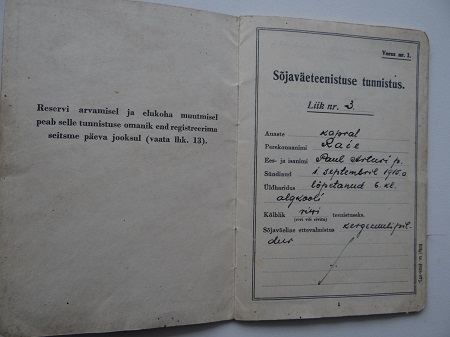 Reservi arvamisel ja elukoha muutmisel
peab selle tunnistuse omanik end registreerima
seitsme päeva jooksul (vaata lhk. 13).
Vorm nr. 1.
Sõjaväeteenistuse tunnistus.
Liik nr. 3
Auaste kapral
Perekonnanimi
Ees- ja isanimi Paul Arturi p.
Sündinud 1. septembril 1915 a
Üldharidus lõpetanud 6. kl.
algkooli
Kõlblik rivi teenistuseks.
(rivi või rivita)
Sõjaväeline ettevalmistus kergekuulipil
dur